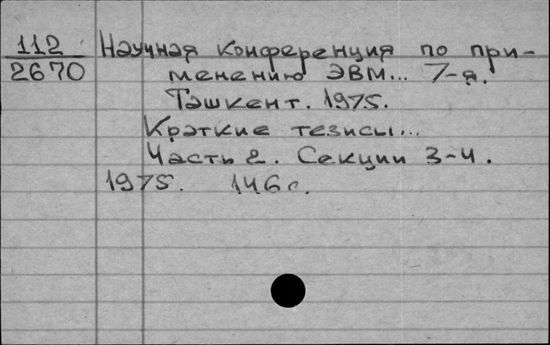 112
2670
Научная конференция по при-
менению ЭВМ... 7-я.
Ташкент. 1975.
Краткие тезисы...
Часть 2. Секции 3-4.
1975. 146 с.